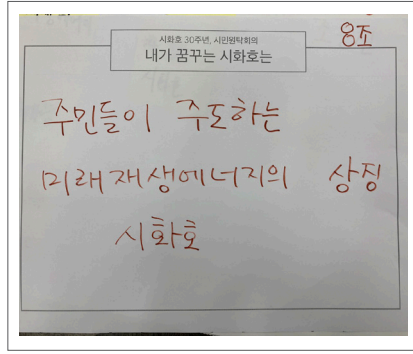 8조
시화호 30주년, 시민원탁회의
내가 꿈꾸는 시화호는
주민들이 주도하는
미래재생에너지의 상징
시화호